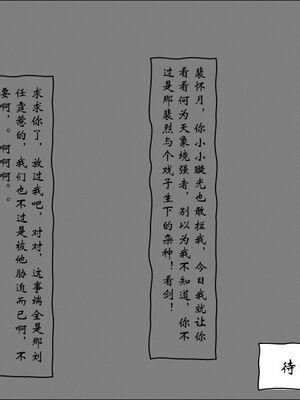 裴怀月，你小小璇光也敢拦我，今日我就让你
看看何为天象境强者，别以为我不知道，你不
过是那裴烈与个戏子生下的杂种！看剑！
求求你了，放过我吧，对对，这事端全是那刘
任霆惹的，我们也不过是被他胁迫而已啊，不
要啊，。啊啊啊。。
待